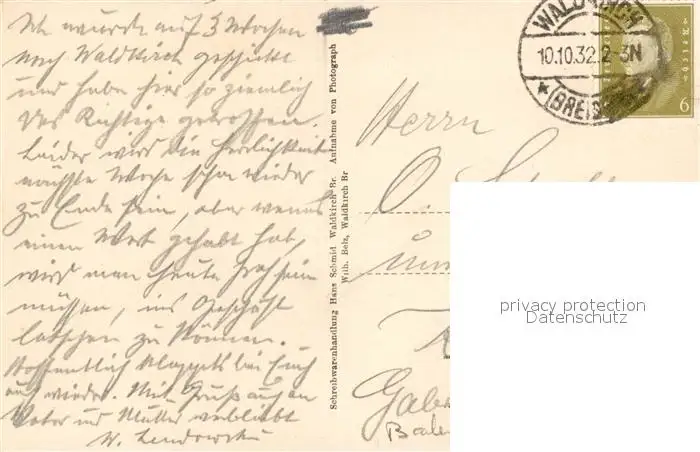 Ich wurde auf 3 Wochen
nach Waldkirch geschickt
und habe hier so ziemlich
das Richtige getroffen.
Leider wird die Herrlichkeit
nächste Woche schon wieder
zu Ende sein, aber wenns
einen Wert gehabt hab,
wird man heute froh sein
müssen, ins Geschäft
latschen zu können.
Hoffentlich klappts bei Euch
auch wieder. Mit Gruß auch an
Vater und Mutter verbleibt
W. Lendowski
Schreibwarenhandlung Hans Schmid, Waldkirch-Br. Aufnahme von Photograph
Wilh. Belz, Waldkirch Br
WALDKIRCH
10.10.32. 2-3N
(BREISG
6
Herrn
O.
privacy protection
Datenschutz